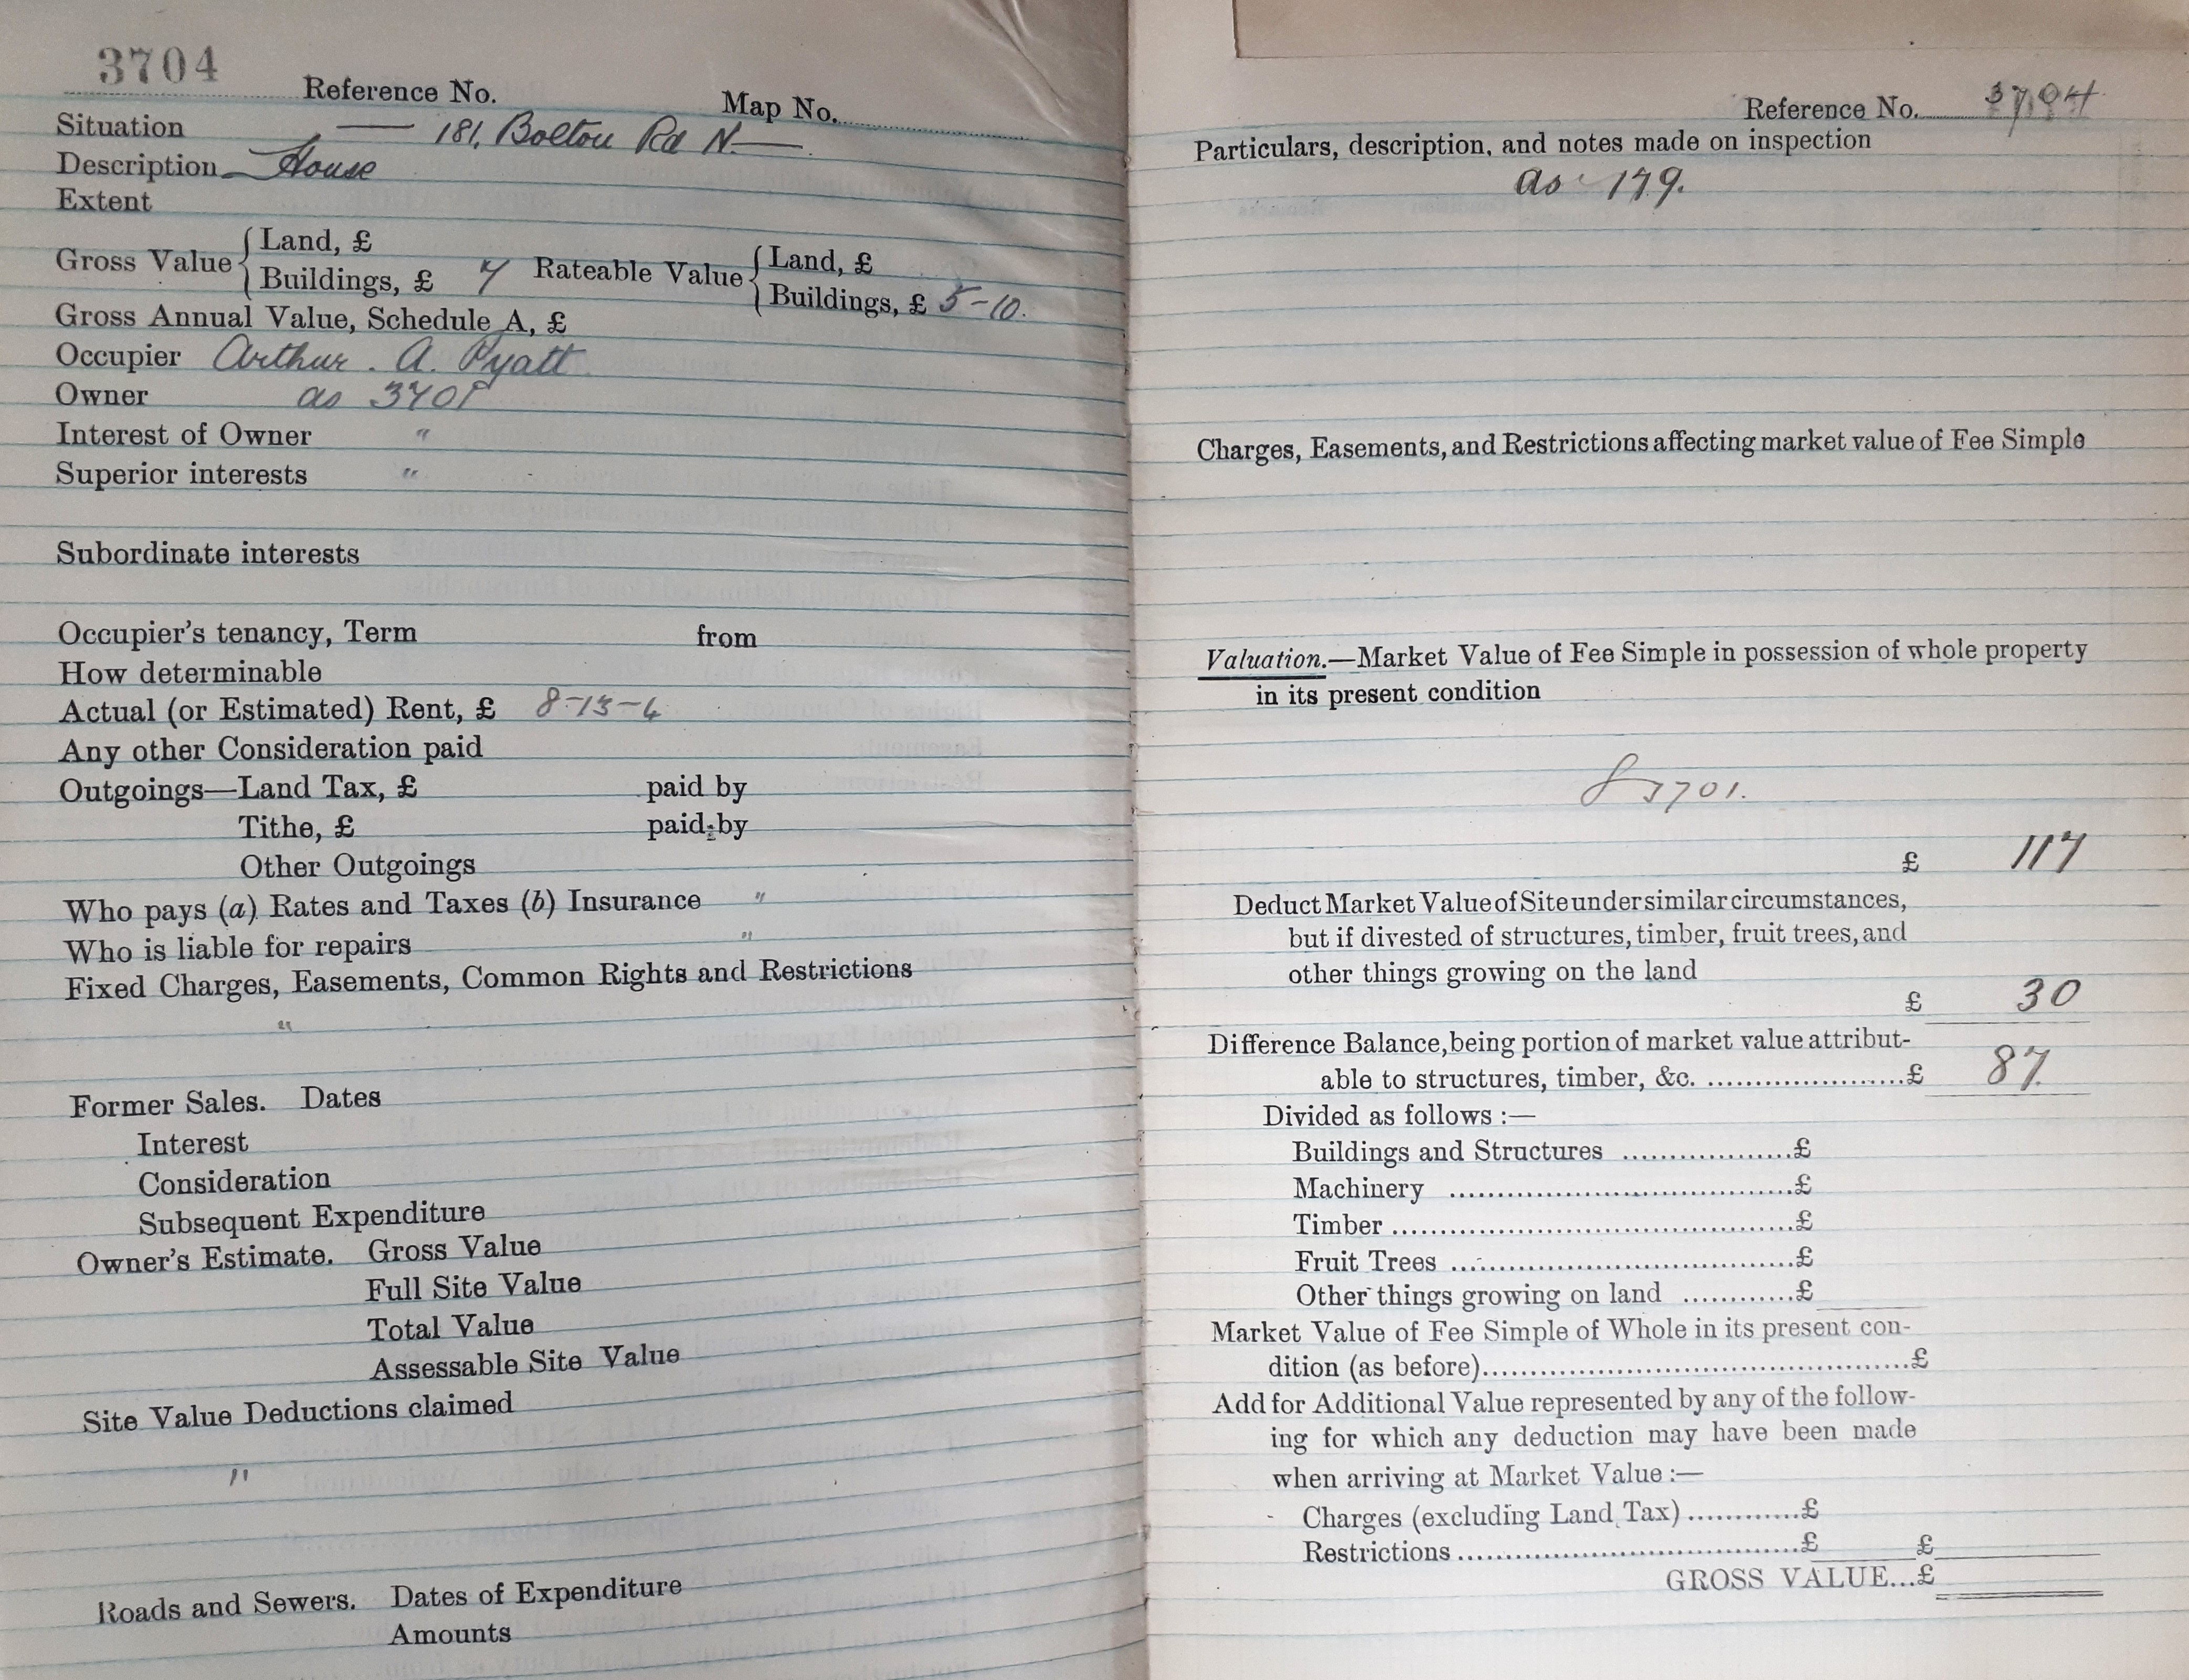 3704
Reference No. Map No.
Situation — 181, Bolton Rd N. —
Description House
Extent
Gross Value { Land, £
Buildings, £ 7 Rateable Value { Land, £
Buildings, £ 5-10.
Gross Annual Value, Schedule A, £
Occupier Arthur. A. Pyatt
Owner as 3701
Interest of Owner "
Superior interests "
Subordinate interests
Occupier's tenancy, Term from
How determinable
Actual (or Estimated) Rent, £ 8-13-4
Any other Consideration paid
Outgoings—Land Tax, £ paid by
Tithe, £ paid by
Other Outgoings
Who pays (a) Rates and Taxes (b) Insurance "
Who is liable for repairs "
Fixed Charges, Easements, Common Rights and Restrictions
"
Former Sales. Dates
Interest
Consideration
Subsequent Expenditure
Owner's Estimate. Gross Value
Full Site Value
Total Value
Assessable Site Value
Site Value Deductions claimed
"
Roads and Sewers. Dates of Expenditure
Amounts
Reference No. 3704
Particulars, description, and notes made on inspection
as 179.
Charges, Easements, and Restrictions affecting market value of Fee Simple
Valuation.—Market Value of Fee Simple in possession of whole property
in its present condition
3701.
£ 117
Deduct Market Value of Site under similar circumstances,
but if divested of structures, timber, fruit trees, and
other things growing on the land
£ 30
Difference Balance, being portion of market value attribut-
able to structures, timber, &c. ......................£ 87.
Divided as follows :—
Buildings and Structures ..................£
Machinery ......................................£
Timber ............................................£
Fruit Trees ......................................£
Other things growing on land ............£
Market Value of Fee Simple of Whole in its present con-
dition (as before)...............................................£
Add for Additional Value represented by any of the follow-
ing for which any deduction may have been made
when arriving at Market Value :—
Charges (excluding Land Tax) ............£
Restrictions ......................................£ £
GROSS VALUE...£